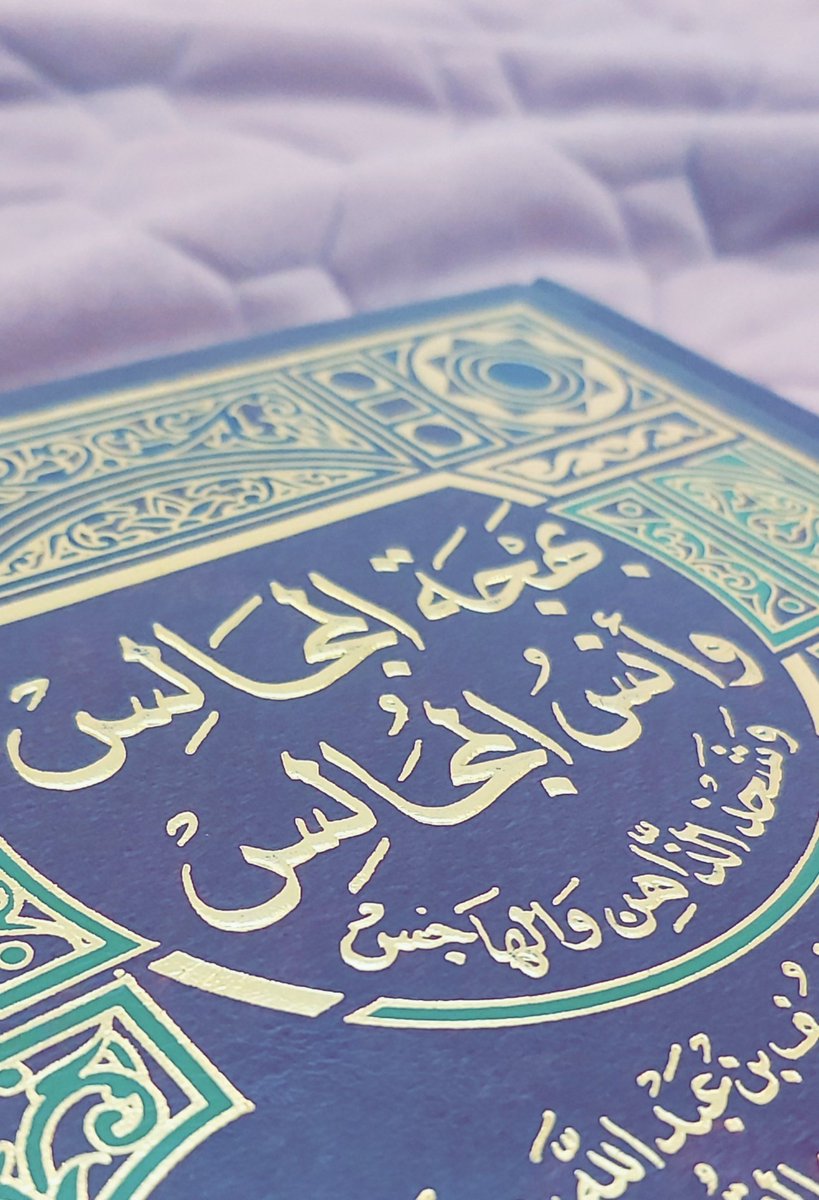 بهْجَة المجَالِسْ
وأنسُ المُجَالِسْ
وَشَحْذُ الذَّاهِن وَالهَاجِسْ
ف بن عَبْد اللَّه